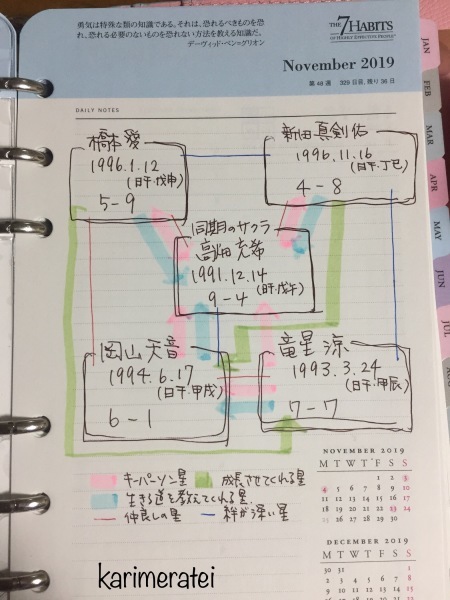 勇気は特殊な類の知識である。それは、恐れるべきものを恐
れ、恐れる必要のないものを恐れない方法を教える知識だ。
デーヴィッド・ベン=グリオン
THE
7 HABITS
OF HIGHLY EFFECTIVE PEOPLE
November 2019
第 48 週 329 日目、残り 36 日
DAILY NOTES
橋本愛
1996.1.12
(日干:戊申)
5-9
新田真剣佑
1996.11.16
(日干:丁巳)
4-8
同期のサクラ
高畑充希
1991.12.14
(日干:戊午)
9-4
岡山天音
1994.6.17
(日干:甲戌)
6-1
竜星涼
1993.3.24
(日干:甲辰)
7-7
キーパーソン星
成長させてくれる星
生きる道を教えてくれる星
仲良しの星
絆が深い星
NOVEMBER 2019
M T W T F S S
1 2 3
4 5 6 7 8 9 10
11 12 13 14 15 16 17
18 19 20 21 22 23 24
25 26 27 28 29 30
DECEMBER 2019
M T W T F S S
30 31 1
2 3 4 5 6 7 8
9 10 11 12 13 14 15
JAN
FEB
MAR
APR
MAY
JUN
JUL
karimeratei